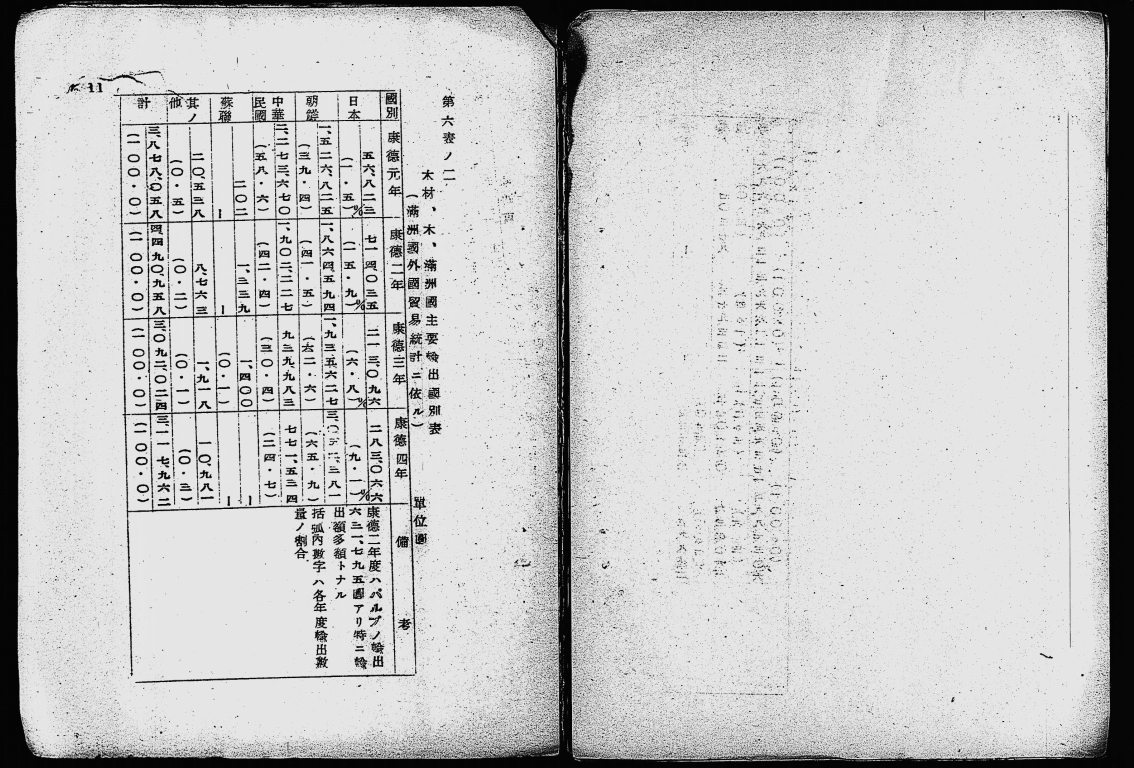 第六表ノ二
木材、木、滿洲國主要輸出國別表
(滿洲國外國貿易統計ニ依ル)
單位圓
國別 康德元年 康德二年 康德三年 康德四年 備考
日本 五六、八二三 七一四、〇三五 二一三、〇九六 二八三、〇六六
(一・五)% (一五・九)% (六・八)% (九・一)%
朝鮮 一、五二六、八二五 一、八六四、五九四 一、九三五、六二七 二、〇五二、三八一
(三九・四) (四一・五) (六二・六) (六五・九)
中華民國 二、二七三、六七〇 一、九〇二、二二七 九三九、九八三 七七一、五三四
(五八・六) (四二・四) (三〇・四) (二四・七)
蘇聯 二〇二 一、三三九 一、四〇〇 ー
ー ー (〇・一) ー
其ノ他 二〇、五三八 八、七六三 一、九一八 一〇、九八一
(〇・五) (〇・二) (〇・一) (〇・三)
計 三、八七八、〇五八 四、四九〇、九五八 三、〇九二、〇二四 三、一一七、九六二
(一〇〇・〇) (一〇〇・〇) (一〇〇・〇) (一〇〇・〇)
康德二年度ハパルプノ輸出
六三一、七九五圓アリ特ニ輸
出額多額トナル
括弧內數字ハ各年度輸出數
量ノ割合
11